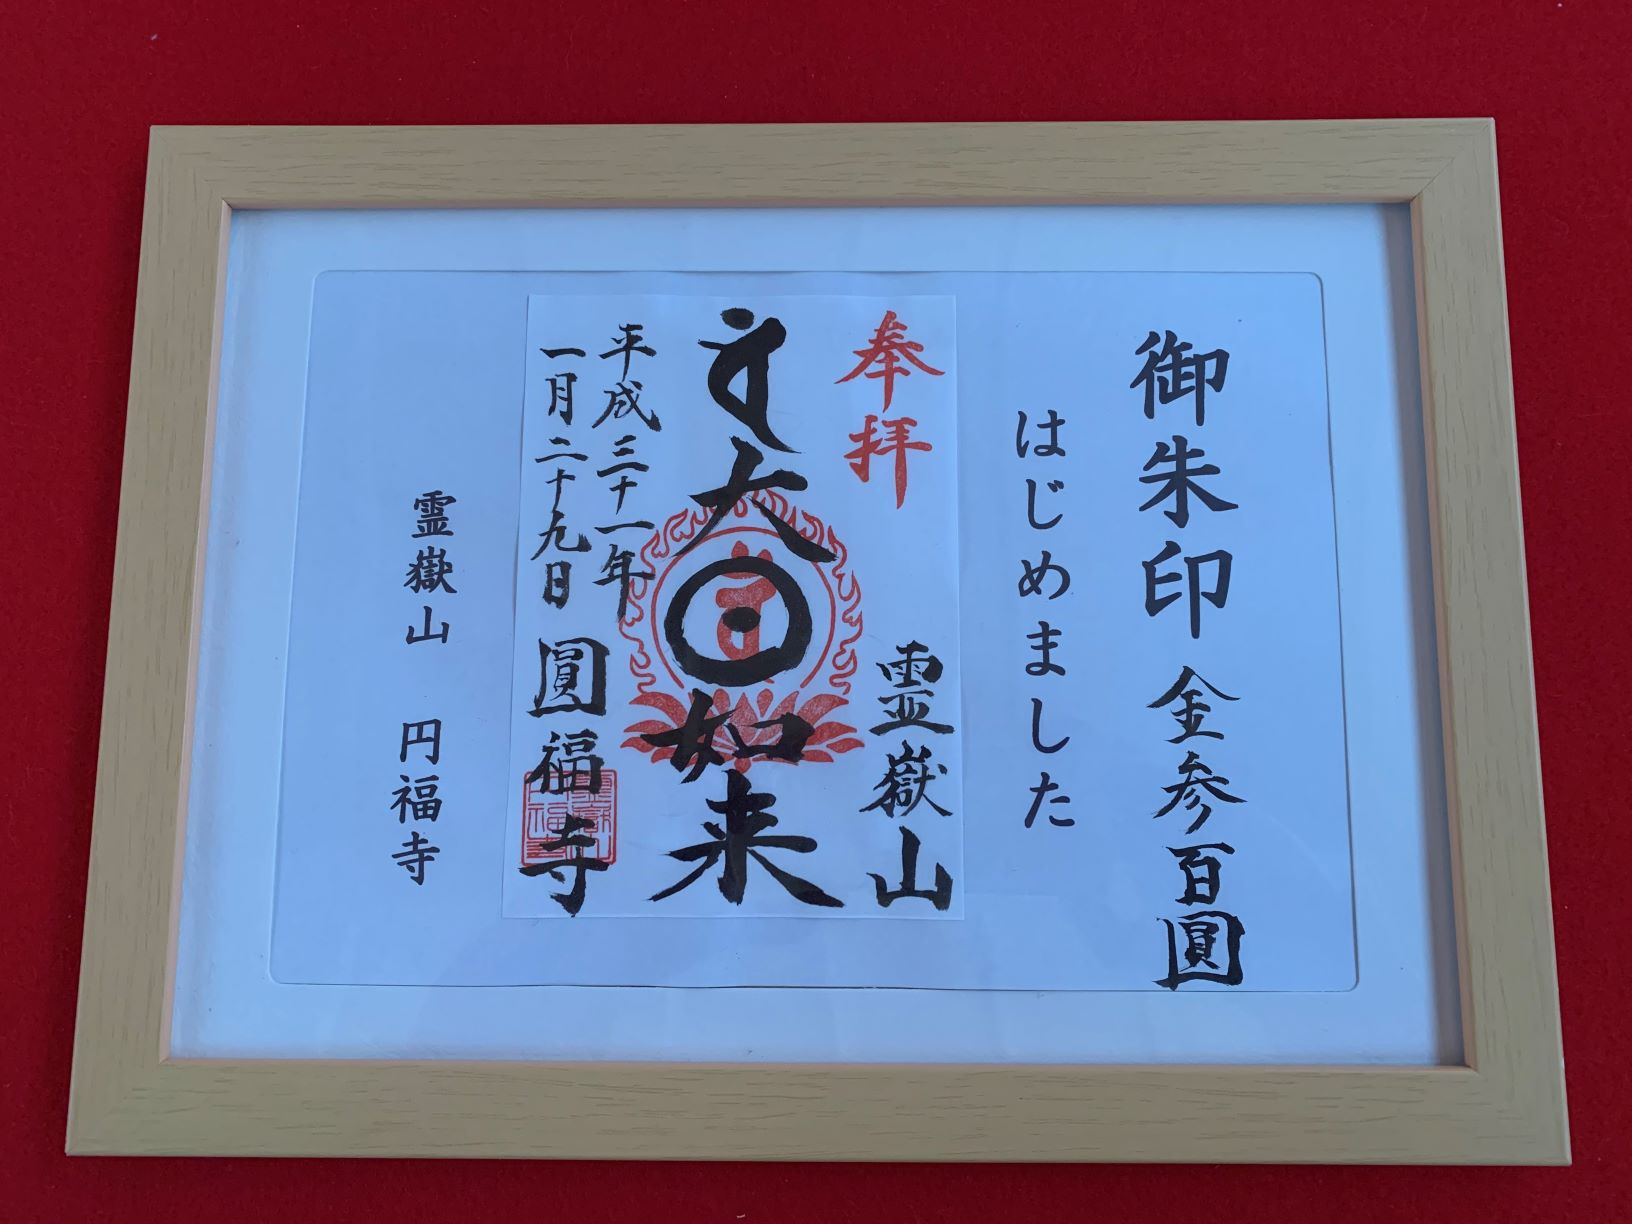 御朱印 金参百圓
はじめました
奉拝
霊嶽山
大日如来
平成三十一年
一月二十九日
圓福寺
霊嶽山 円福寺